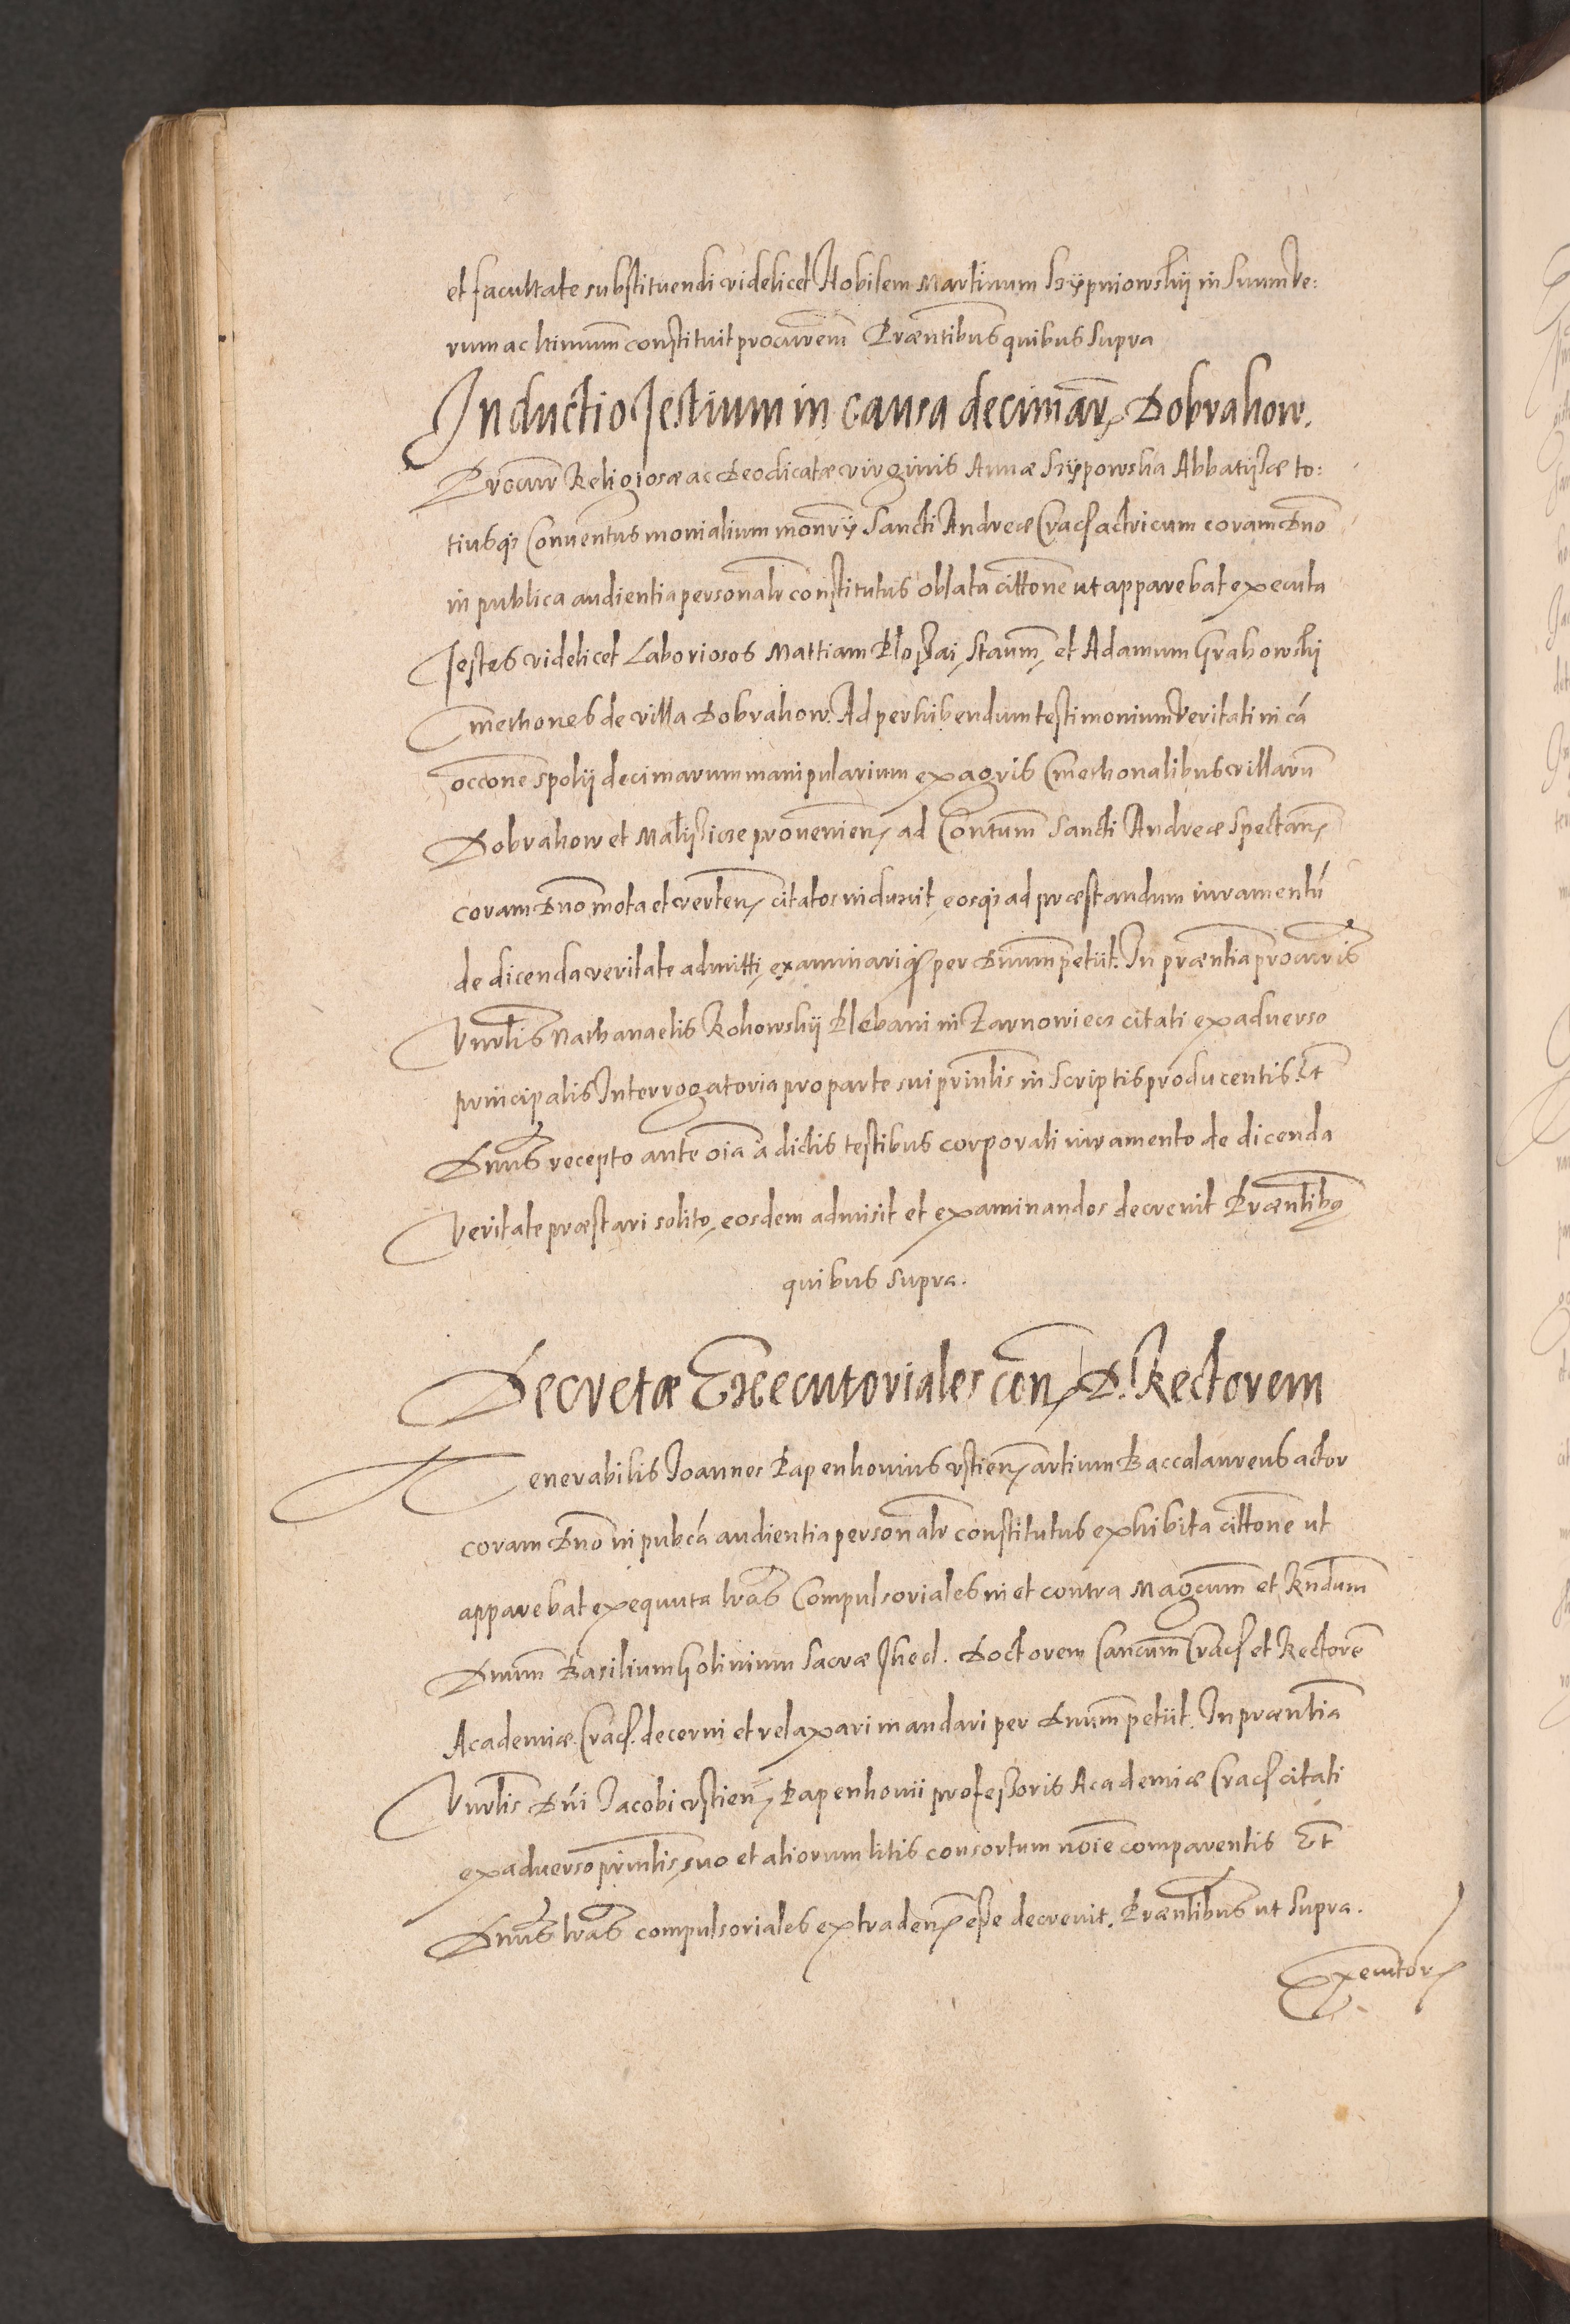 et facultate substituendi videlicet Nobilem Martinum Szÿpniowskÿ in Suum ve:
rum ac ltimum constituit procurem Præntibus quibus supra
Inductio Testium in causa decimar Dobrakow.
Procur Religiosæ ac Deodicatæ virginis Annæ Szÿpowska Abbatissæ to:
tiusq Conventus monialium monrÿ Sancti Andreæ Crac. actricum coram Dno
in publica audientia personalr constitutus oblata cittone ut apparebat executa
Testes videlicet Laboriosos Mattiam Plossai, Staum, et Adamum Grabowski
Cmethones de villa Dobrakow. Ad perhibendum testimonium veritati in cá
occone spolÿ decimarum manipularium ex agris Cmethonalibus villarũ
Dobrakow et Malÿssice provenien ad Contum Sancti Andreæ Spectan
coram Dno mota et verten citatos induxit, eosq ad præstandum iuramentũ
de dicenda veritate admitti, examinariq per Dnum petiit. In præntia procuris
Vnrlis Nathanaelis Kokowskÿ Plebani in Żarnowiecz citati ex adverso
principalis Interrogatoria pro parte sui prinlis in Scriptis producentis. Et
Dnus recepto ante oia à dictis testibus corporali iuramento de dicenda
veritate præstari solito, eosdem admisit et examinandos decrevit Præntibus
quibus supra.
Decretæ Executoriales con D. Rectorem
Venerabilis Joannes Papenkovius Ustien artium Baccalaureus actor
coram Dno in pubcá audientia personalr constitutus exhibita cittone ut
apparebat exequuta lras Compulsoriales in et contra Magcum et Rndum
Dnum Basilium Golinium Sacræ Theol. Doctorem Cancum Crac. et Rectorẽ
Academiæ Crac. decerni et relaxari mandari per Dnum petiit. In præntia
Vnrlis Dni Jacobi Ustien Papenkovii professoris Academiæ Crac. citati
ex adverso prinlis, suo et aliorum litis consortum noie comparentis Et
Dnus lras compulsoriales extraden esse decrevit. Præntibus ut supra.
Executor